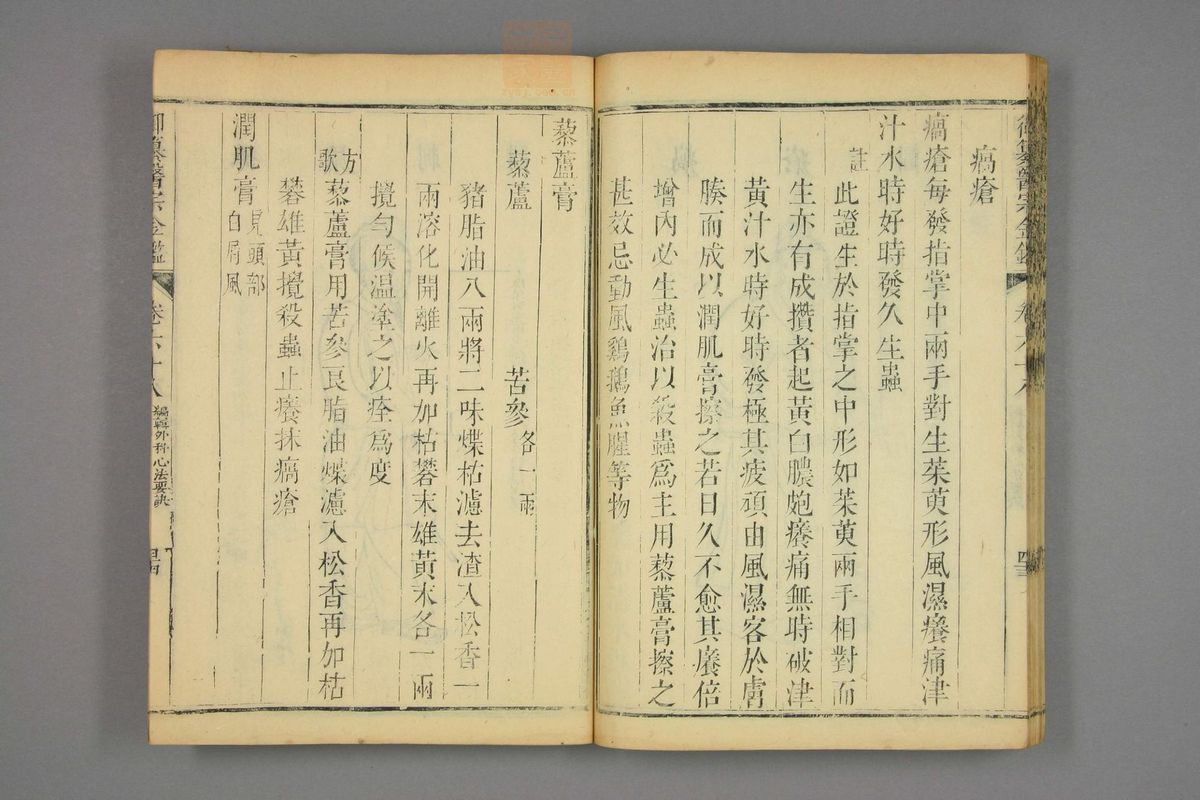 瘑瘡
瘑瘡每發指掌中兩手對生茱萸形風濕癢痛津
汁水時好時發久生蟲
註
此證生於指掌之中形如茱萸兩手相對而
生亦有成攢者起黃白膿皰癢痛無時破津
黃汁水時好時發極其疲頑由風濕客於膚
腠而成以潤肌膏擦之若日久不愈其癢倍
增內必生蟲治以殺蟲為主用藜蘆膏擦之
甚效忌動風鷄鵝魚腥等物
藜蘆膏
藜蘆 苦參各一兩
豬脂油八兩將二味煠枯濾去渣入松香一
兩溶化開離火再加枯礬末雄黃末各一兩
攪勻候温塗之以痊爲度
方歌
藜蘆膏用苦參良脂油煠濾入松香再加枯
礬雄黃攪殺蟲止癢抹瘑瘡
潤肌膏見頭部白屑風
御纂醫宗金鑑 卷六十八 編輯外科心法要訣